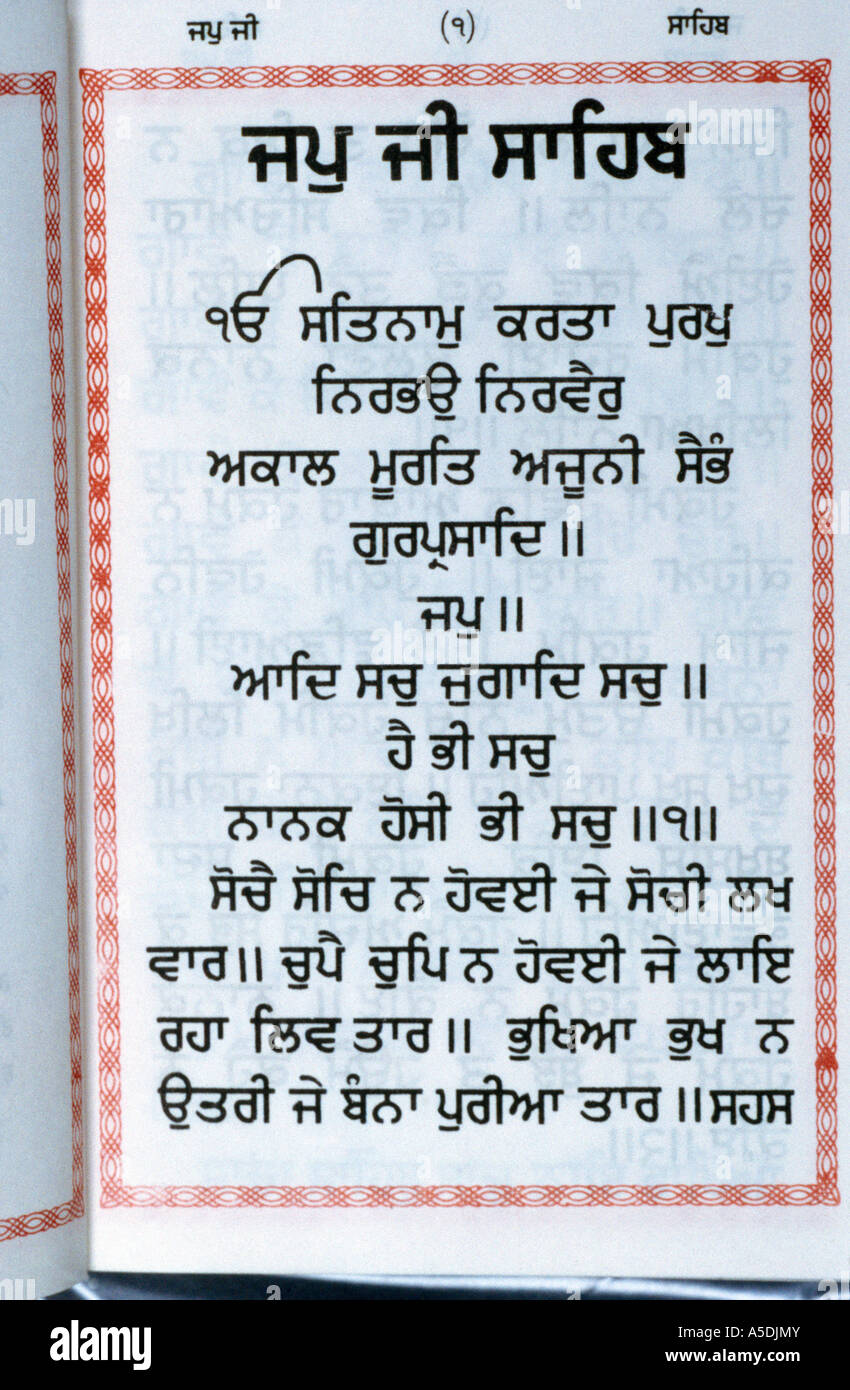 ਜਪੁ ਜੀ (੧) ਸਾਹਿਬ
ਜਪੁ ਜੀ ਸਾਹਿਬ
ੴ ਸਤਿਨਾਮੁ ਕਰਤਾ ਪੁਰਖੁ
ਨਿਰਭਉ ਨਿਰਵੈਰੁ
ਅਕਾਲ ਮੂਰਤਿ ਅਜੂਨੀ ਸੈਭੰ
ਗੁਰਪ੍ਰਸਾਦਿ॥
ਜਪੁ॥
ਆਦਿ ਸਚੁ ਜੁਗਾਦਿ ਸਚੁ॥
ਹੈ ਭੀ ਸਚੁ
ਨਾਨਕ ਹੋਸੀ ਭੀ ਸਚੁ॥੧॥
ਸੋਚੈ ਸੋਚਿ ਨ ਹੋਵਈ ਜੇ ਸੋਚੀ ਲਖ
ਵਾਰ॥ ਚੁਪੈ ਚੁਪਿ ਨ ਹੋਵਈ ਜੇ ਲਾਇ
ਰਹਾ ਲਿਵ ਤਾਰ॥ ਭੁਖਿਆ ਭੁਖ ਨ
ਉਤਰੀ ਜੇ ਬੰਨਾ ਪੁਰੀਆ ਤਾਰ॥ਸਹਸ
alamy
Image ID: A5DJMY
www.alamy.com